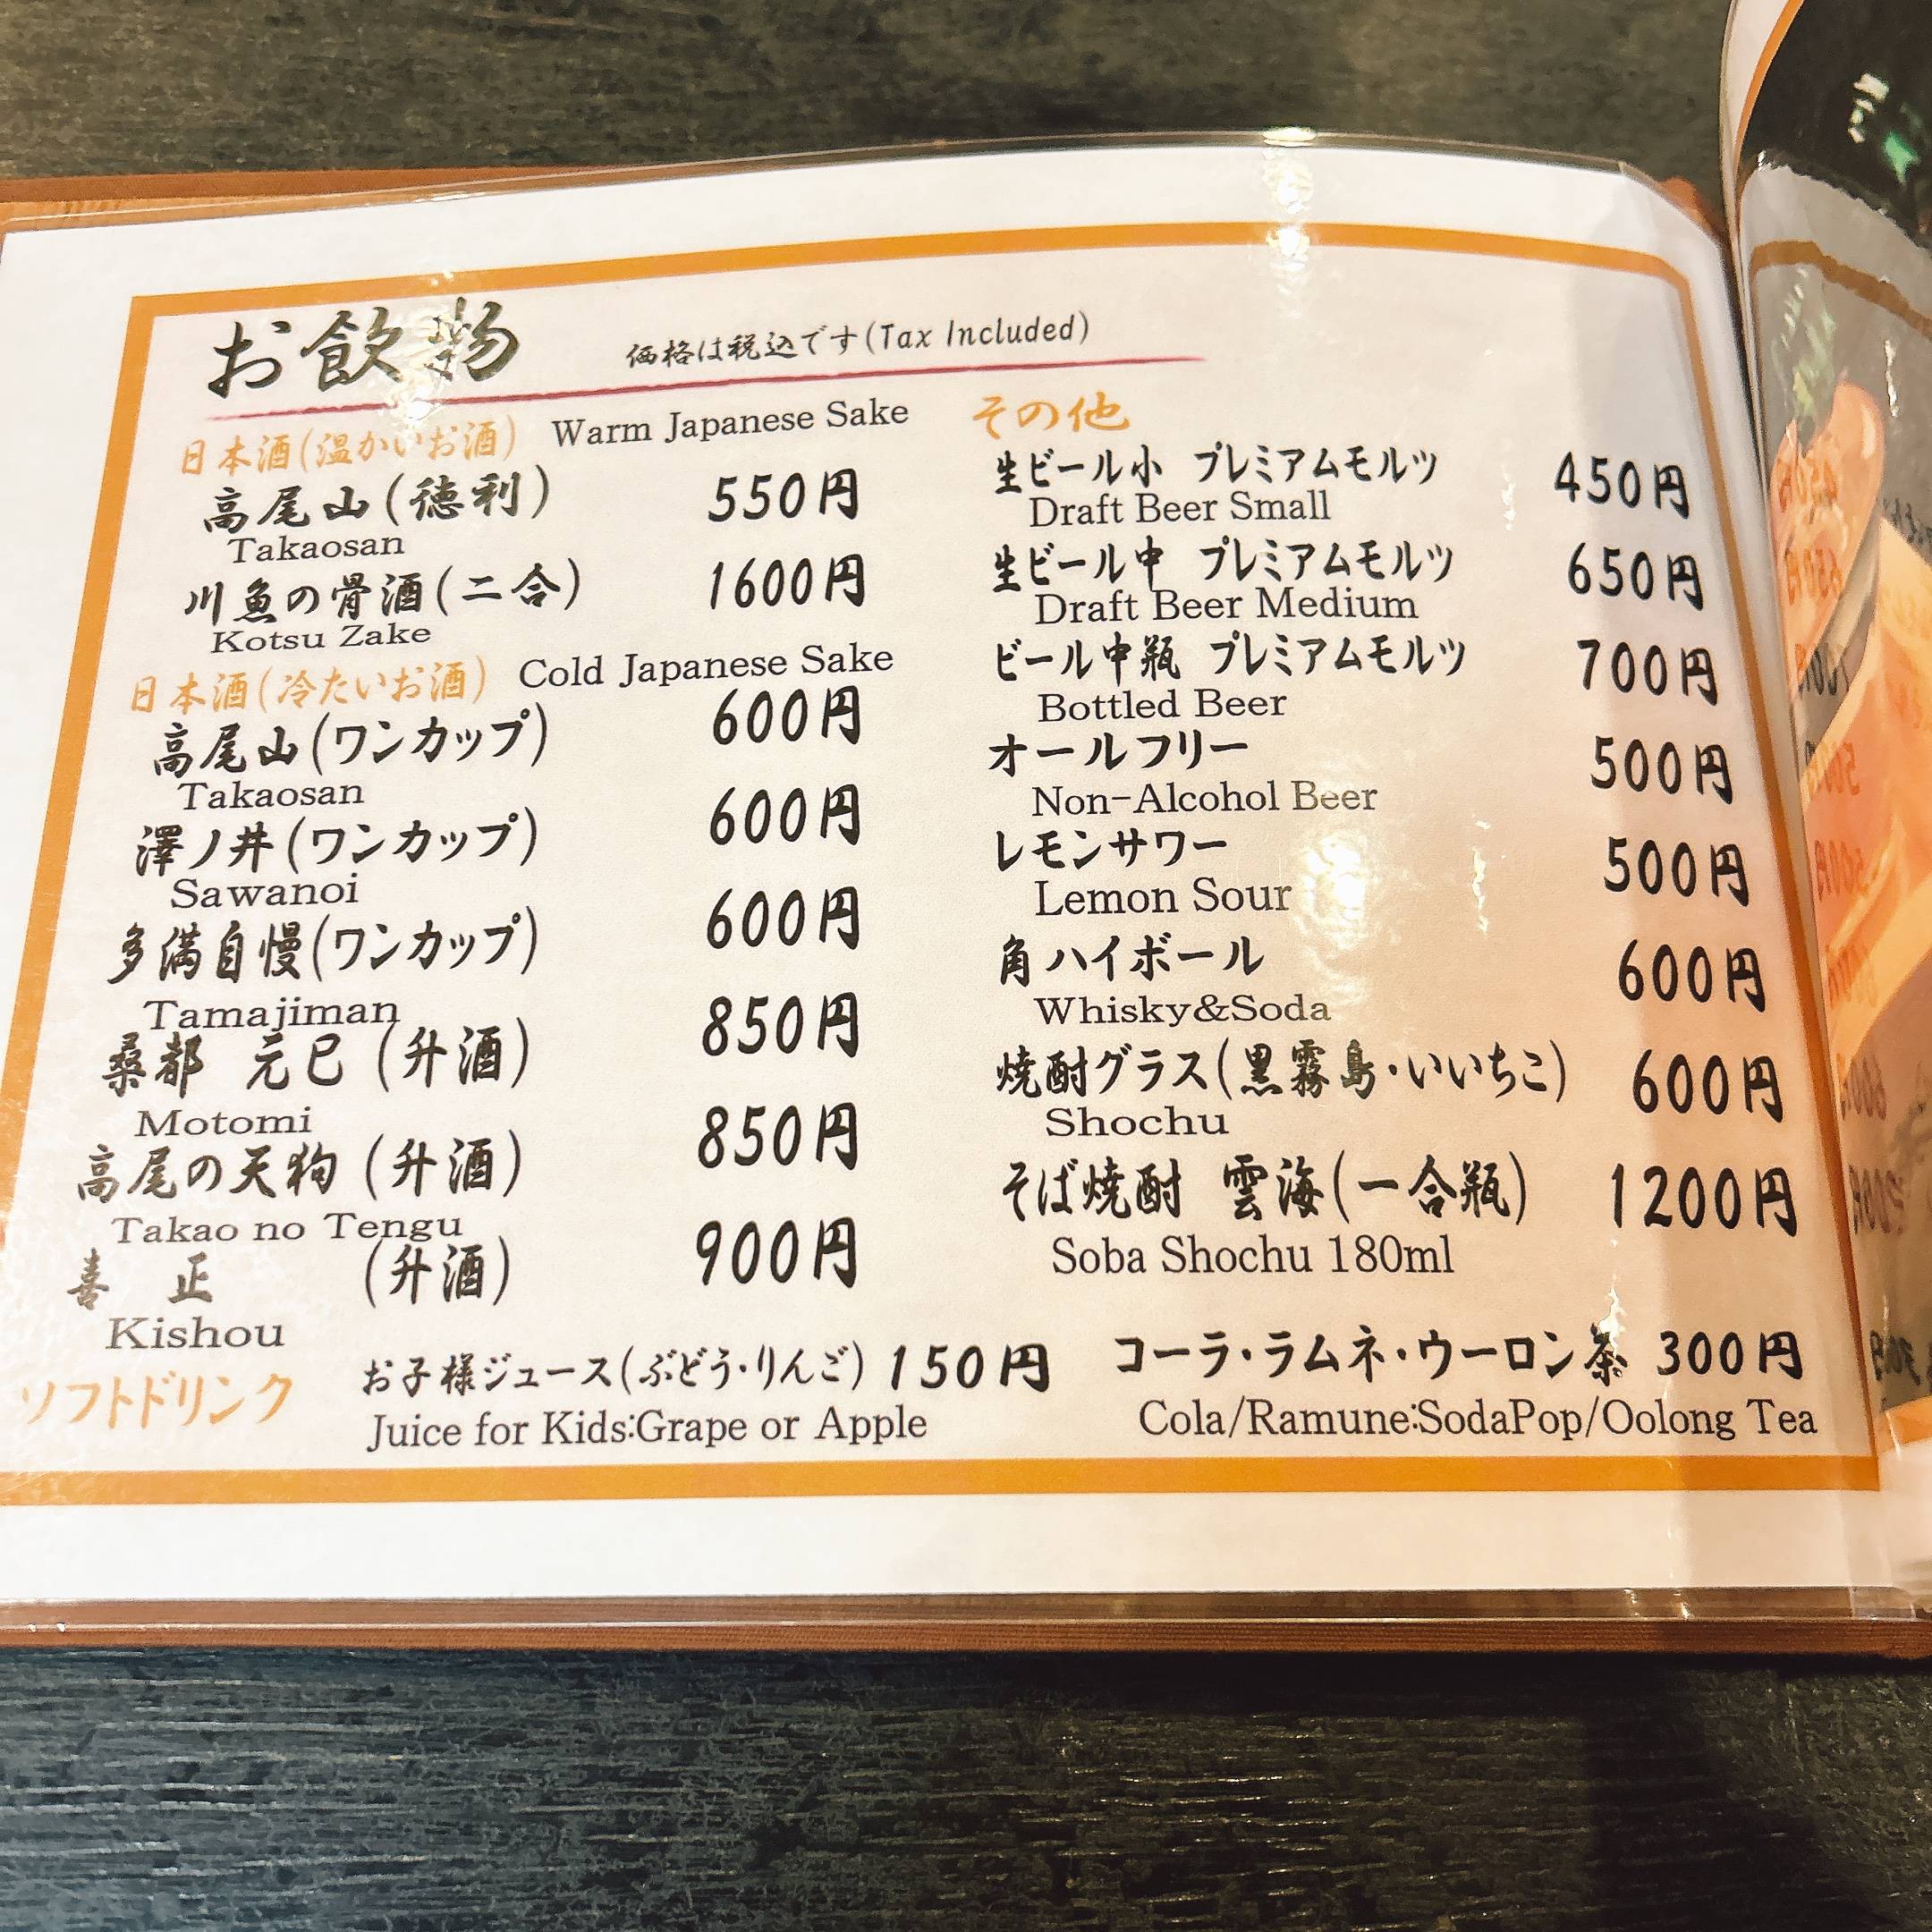 お飲物 価格は税込です(Tax Included)
日本酒(温かいお酒) Warm Japanese Sake
高尾山(徳利) 550円
Takaosan
川魚の骨酒(二合) 1600円
Kotsu Zake
日本酒(冷たいお酒) Cold Japanese Sake
高尾山(ワンカップ) 600円
Takaosan
澤ノ井(ワンカップ) 600円
Sawanoi
多満自慢(ワンカップ) 600円
Tamajiman
桑都 元巳 (升酒) 850円
Motomi
高尾の天狗 (升酒) 850円
Takao no Tengu
喜 正 (升酒) 900円
Kishou
その他
生ビール小 プレミアムモルツ 450円
Draft Beer Small
生ビール中 プレミアムモルツ 650円
Draft Beer Medium
ビール中瓶 プレミアムモルツ 700円
Bottled Beer
オールフリー 500円
Non-Alcohol Beer
レモンサワー 500円
Lemon Sour
角ハイボール 600円
Whisky&Soda
焼酎グラス(黒霧島・いいちこ) 600円
Shochu
そば焼酎 雲海(一合瓶) 1200円
Soba Shochu 180ml
ソフトドリンク お子様ジュース(ぶどう・りんご) 150円 コーラ・ラムネ・ウーロン茶 300円
Juice for Kids:Grape or Apple Cola/Ramune:SodaPop/Oolong Tea